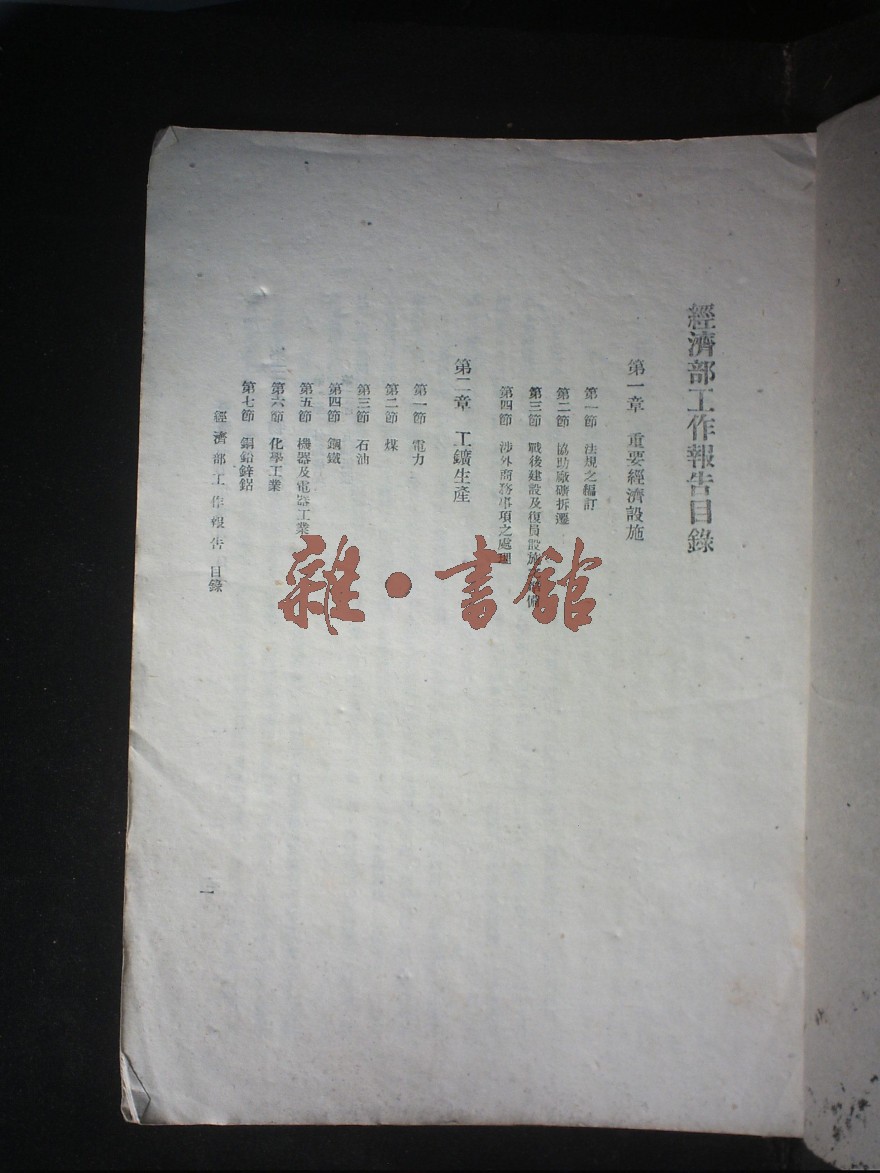 經濟部工作報告目錄
第一章 重要經濟設施
第一節 法規之編訂
第二節 協助廠礦拆遷
第三節 戰後建設及復員設施
第四節 涉外商務事項之處理
第二章 工鑛生產
第一節 電力
第二節 煤
第三節 石油
第四節 鋼鐵
第五節 機器及電器工業
第六節 化學工業
第七節 銅鉛鋅鋁
經濟部工作報告 目錄
一
雜·書館